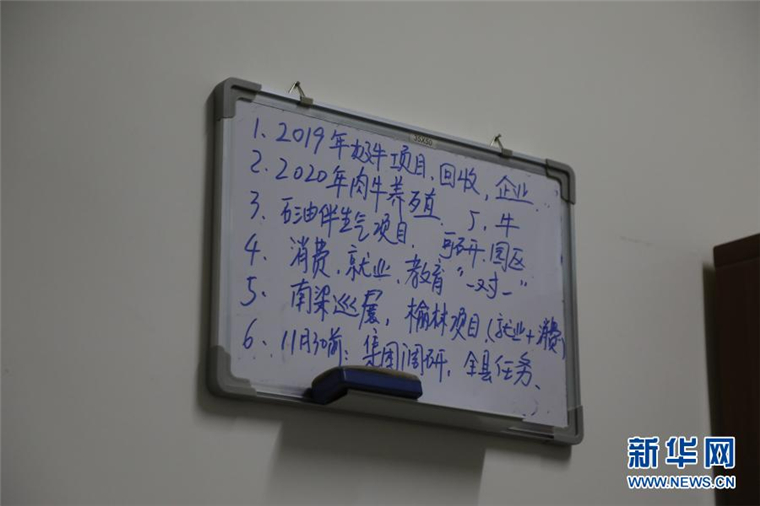 1、2019年奶牛项目、回收,企业
2、2020年肉牛养殖、 5、牛
3、石油伴生气项目、 可研、园区
4、消费、就业、教育“一对一”
5、南梁巡展,榆林项目(就业+消费)
6、11月30前:集团调研,全县任务、
新华网
WWW.NEWS.CN